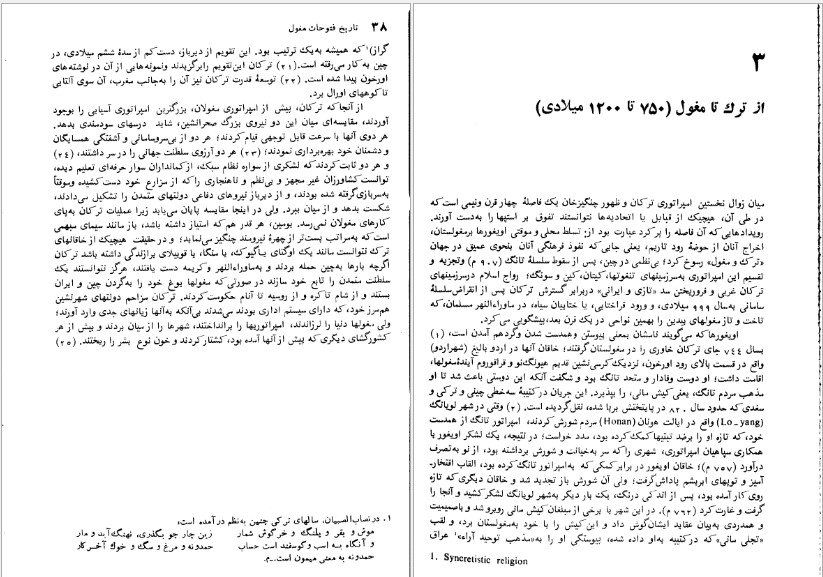 ۳۸ تاریخ فتوحات مغول
گراز)۱ که همیشه به‌یک ترتیب بود. این تقویم از دیرباز، دست‌کم از سدهٔ ششم میلادی، در
چین به‌کار می‌رفته است. (۲۱) ترکان این‌تقویم را برگزیدند ونمونه‌هایی از آن در نوشته‌های
اورخون پیدا شده است. (۲۲) توسعهٔ قدرت ترکان نیز آن را به‌جانب مغرب، آن سوی آلتایی
تا کوههای اورال برد.
از آنجاکه ترکان، پیش از امپراتوری مغولان، بزرگترین امپراتوری آسیایی را بوجود
آوردند، مقایسه‌ای میان این دو نیروی بزرگ صحرانشین، شاید درسهای سودمندی بدهد.
هر دوی آنها با سرعت قابل توجهی قیام کردند؛ هر دو از بی‌سروسامانی و آشفتگی همسایگان
و دشمنان خود بهره‌برداری نمودند؛ (۲۳) هر دو آرزوی سلطنت جهانی را در سر داشتند، (۲۴)
و هر دو ثابت کردند که لشکری از سواره نظام سبک، از کمانداران سوار حرفه‌ای تعلیم دیده،
توانست کشاورزان غیر مجهز و بی‌نظم و ناهنجاری را که از مزارع خود دست کشیده وموقتاً
به‌سربازی گرفته شده بودند، و از دیرباز نیروهای دفاعی دولتهای متمدن را تشکیل می‌دادند،
شکست بدهد و از میان ببرد. ولی در اینجا مقایسه پایان می‌یابد زیرا عملیات ترکان به‌پای
کارهای مغولان نمی‌رسد. بومین، هر قدر هم که امتیاز داشته باشد، باز مانند سیمای مبهمی
است که به‌مراتب پست‌تر از چهرهٔ نیرومند چنگیز می‌نماید؛ و در حقیقت هیچیک از خاقانهای
ترک نتوانست مانند یک اوگتای، یا منگو، یا قوبیلای برازندگی داشته باشد. ترکان
اگرچه بارها به‌چین حمله بردند و به‌ماوراءالنهر و کریمه دست یافتند، هرگز نتوانستند یک
سلطنت متمدن را تابع خود سازند در صورتی‌که مغولها یوغ خود را به‌گردن چین و ایران
بستند و از شام تا کره و از روسیه تا آنام حکومت کردند. ترکان مزاحم دولتهای شهرنشین
هم‌مرز خود، که دارای سیستم اداری بودند می‌شدند بی‌آنکه به‌آنها زیانهای جدی وارد آورند؛
ولی مغولها دنیا را لرزاندند، امپراتوریها را برانداختند، شهرها را از میان بردند و بیش از هر
کشورگشای دیگری که پیش از آنها آمده بود، کشتار کردند و خون نوع بشر را ریختند. (۲۵)
۱. در نصاب‌الصبیان، سالهای ترکی چنین به‌نظم در آمده است،
موش و بقر و پلنگ و خرگوش شمار زین چار چو بگذری، نهنگ‌آید و مار
و آنگاه به اسب و گوسفند است حساب حمدونه و مرغ و سگ و خوک آخر کار
حمدونه به معنی میمون است.ـم.
۳
از ترک تا مغول (۷۵۰ تا ۱۲۰۰ میلادی)
میان زوال نخستین امپراتوری ترکان و ظهور چنگیزخان یک فاصلهٔ چهار قرن ونیمی است که
در طی آن، هیچیک از قبایل یا اتحادیه‌ها نتوانستند تفوق بر استپها را به‌دست آورند.
رویدادهایی که آن فاصله را پر کرد عبارت بود از: تسلط محلی و موقتی اویغورها برمغولستان،
اخراج آنان از حوضهٔ رود تاریم، یعنی جایی که نفوذ فرهنگی آنان بنحوی عمیق در جهان
«ترک و مغول» رسوخ کرد؛ بی‌نظمی در چین، پس از سقوط سلسلهٔ تانگ (۹۰۷ م) وتجزیه و
تقسیم این امپراتوری به‌سرزمینهای تنغوتها، کیتان، کین و سونگ؛ رواج اسلام درسرزمینهای
ترکان غربی و فروریختن سد «تازی و ایرانی» دربرابر گسترش ترکان پس از انقراض سلسلهٔ
سامانی به‌سال ۹۹۹ میلادی، و ورود قراختایی، یا ختاییان سیاه، در ماوراءالنهر مسلمان، که
تاخت و تاز مغولهای بیدین را بهمین نواحی در یک قرن بعد، پیشگویی می‌کرد.
اویغورها که می‌گویند نامشان بمعنی پیوستن وهمدست شدن وگردهم آمدن است، (۱)
بسال ۷۴۴ جای ترکان خاوری را در مغولستان گرفتند؛ خاقان آنها در اردو بالیغ (شهراردو)
واقع در قسمت بالای رود اورخون، نزدیک کرسی‌نشین قدیم هیونگ‌نو و قراقوروم آیندهٔ مغولها،
اقامت داشت؛ او دوست وفادار و متحد تانگ بود و شگفت آنکه این دوستی باعث شد تا او
مذهب مردم تانگ، یعنی کیش مانی، را بپذیرد. این جریان در کتیبهٔ سه‌خطی چینی و ترکی و
سغدی که حدود سال ۸۲۰ در پایتختش برپا شده، نقل گردیده است. (۲) وقتی در شهر لویانگ
(Lo-yang) واقع در ایالت هونان (Honan) مردم شورش کردند، امپراتور تانگ از همدست
خود، که تازه او را برضد تبتیها کمک کرده بود، مدد خواست؛ در نتیجه، یک لشکر اویغور با
همکاری سپاهیان امپراتوری، شهری را که سر به‌خیانت و شورش برداشته بود، از نو به‌تصرف
درآورد (۷۵۷ م)؛ خاقان اویغور در برابر کمکی که به‌امپراتور تانگ کرده بود، القاب افتخار-
آمیز و توپهای ابریشم پاداش گرفت؛ ولی آن شورش باز تجدید شد و خاقان دیگری که تازه
روی کار آمده بود، پس از اندکی درنگ، یک بار دیگر به‌شهر لویانگ لشکر کشید و آنجا را
گرفت و غارت کرد (۷۶۲ م). در این شهر با برخی از مبلغان کیش مانی روبرو شد و باصمیمیت
و همدردی به‌بیان عقاید ایشان گوش داد و این کیش را با خود به‌مغولستان برد، و لقب
«تجلی مانی» که در کتیبه به‌او داده شده، پیوستگی او را به «مذهب توحید آراء»۱ عراق
1. Syncretistic religion